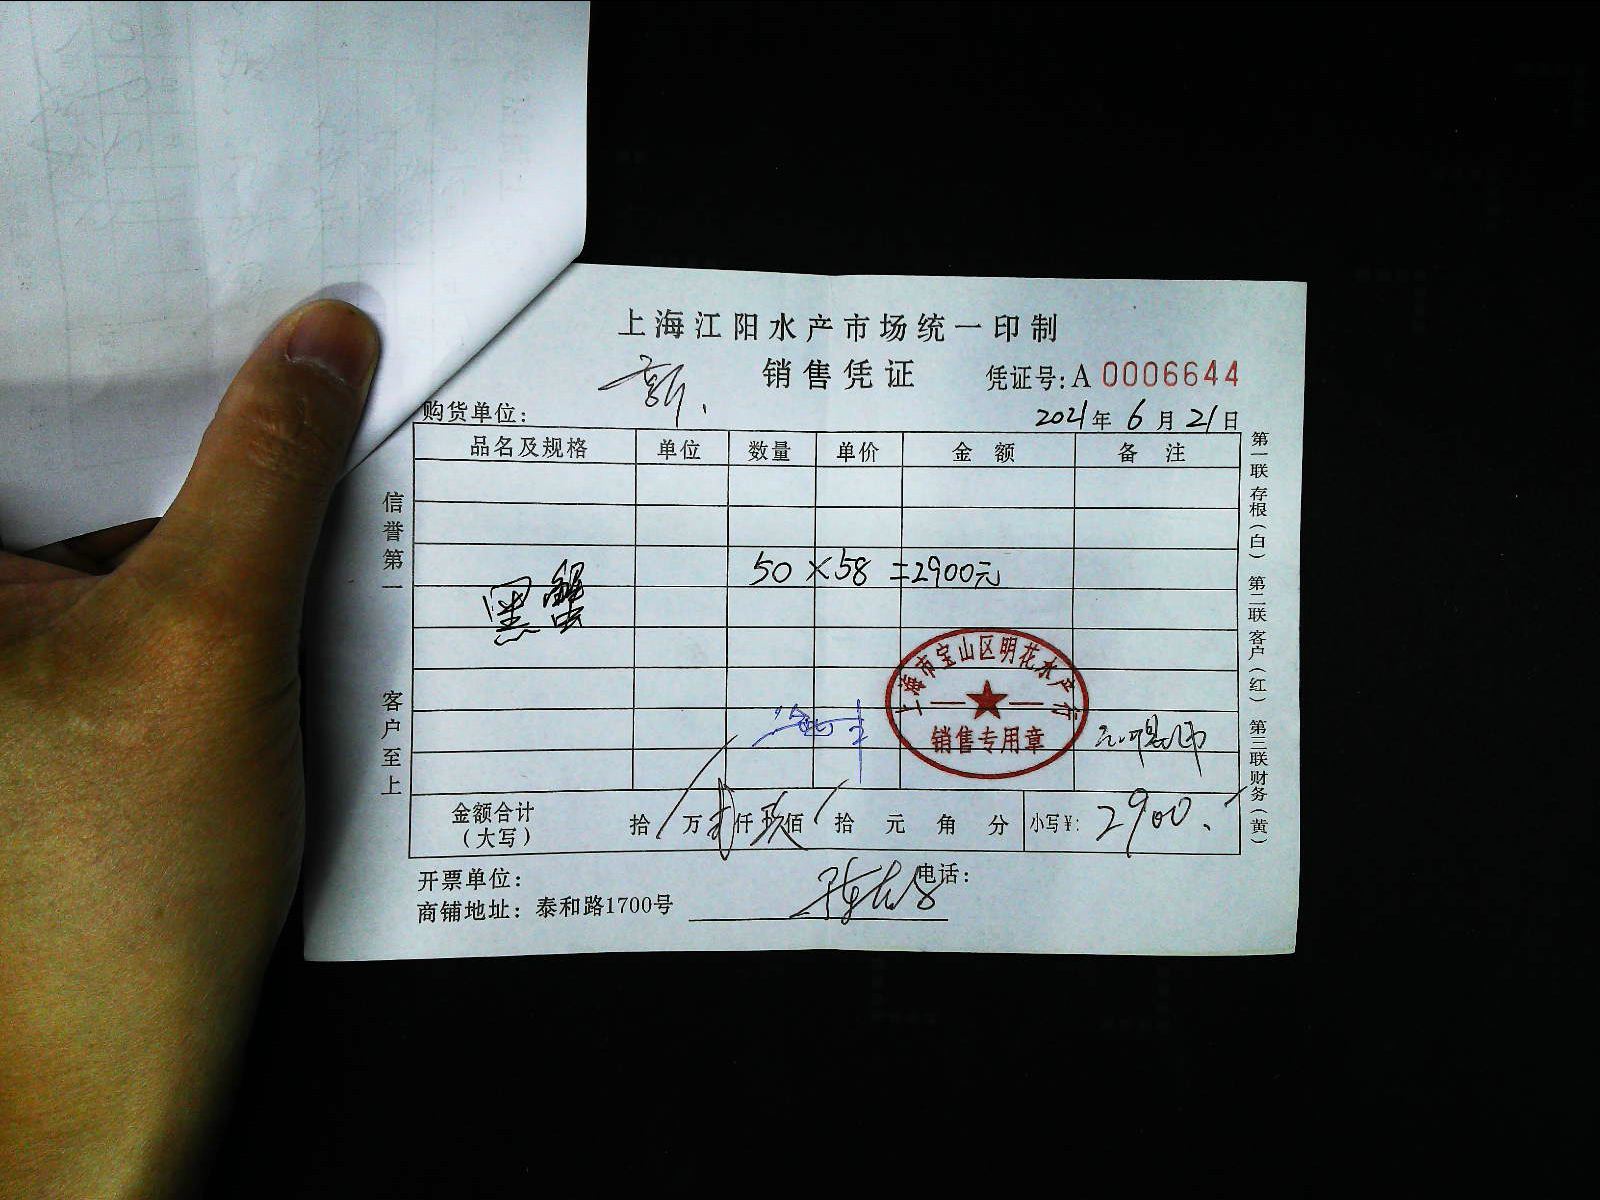 上海江阳水产市场统一印制
销售凭证
凭证号: A 0006644
购货单位:
2021年 6月 21日
品名及规格 单位 数量 单价 金额 备注
黑蟹 50 × 58 = 2900元
上海市宝山区明花水产行
销售专用章
金额合计(大写) 拾 万 贰仟 玖佰 拾 元 角 分 小写¥: 2900.
开票单位:
电话:
商铺地址: 泰和路1700号
信誉第一 客户至上
第一联存根(白) 第二联客户(红) 第三联财务(黄)